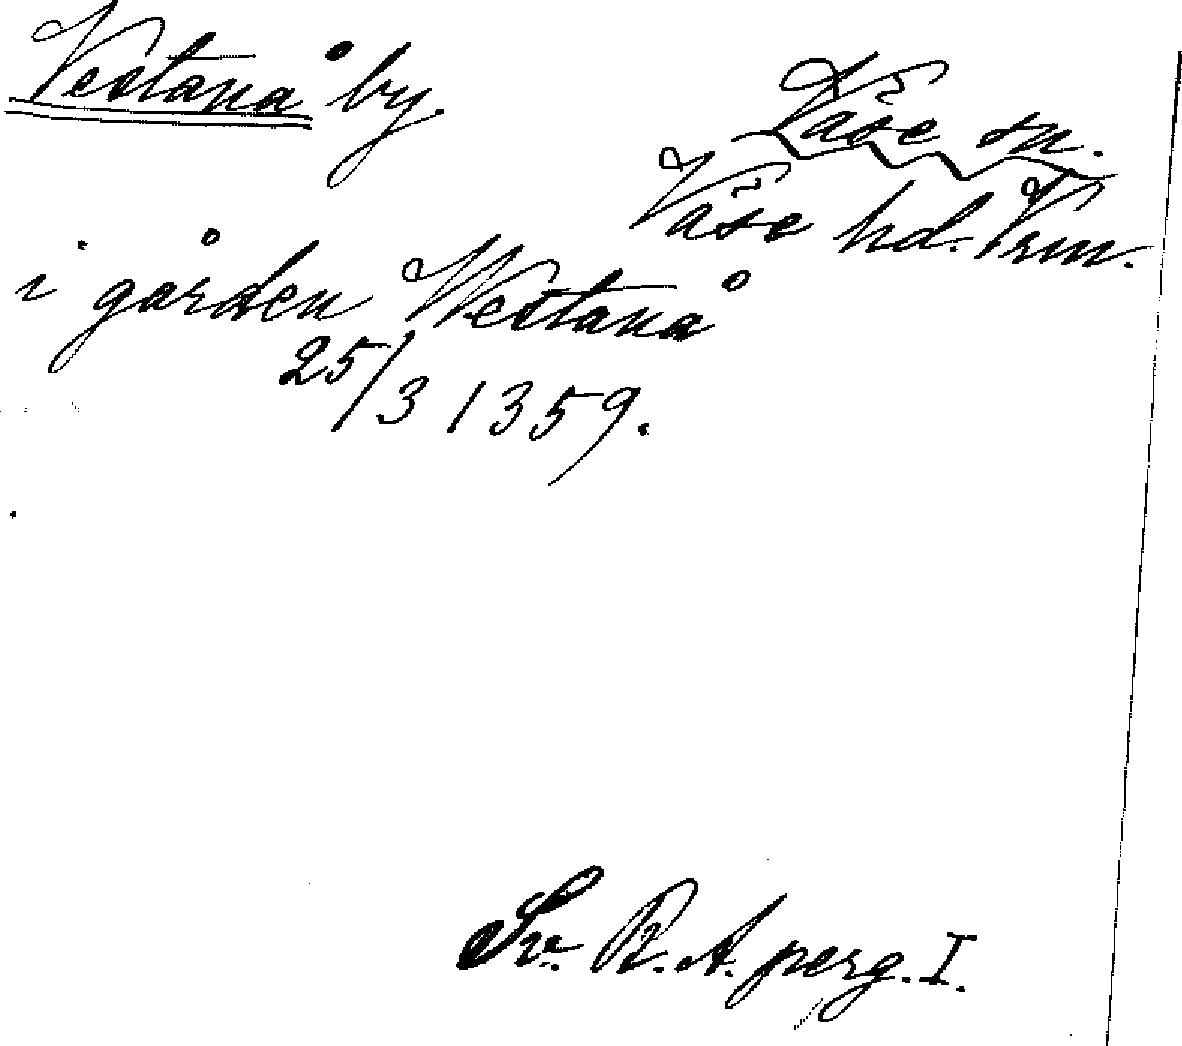 Vestanå by.
Väse sn.
Väse hd. Vrm.
i gården Westanå
25/3 1359.
Sv. R. A. perg. I.